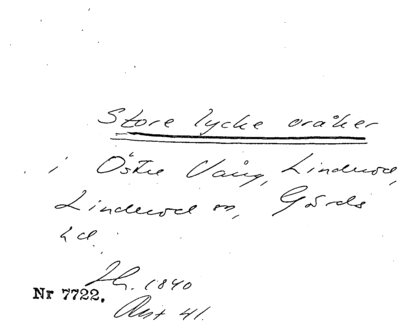 Store lycke oråker
i Östre Vång, Linderöd,
Linderöd sn, Gärds
hd.
1840
Nr 7722.
Akt 41.